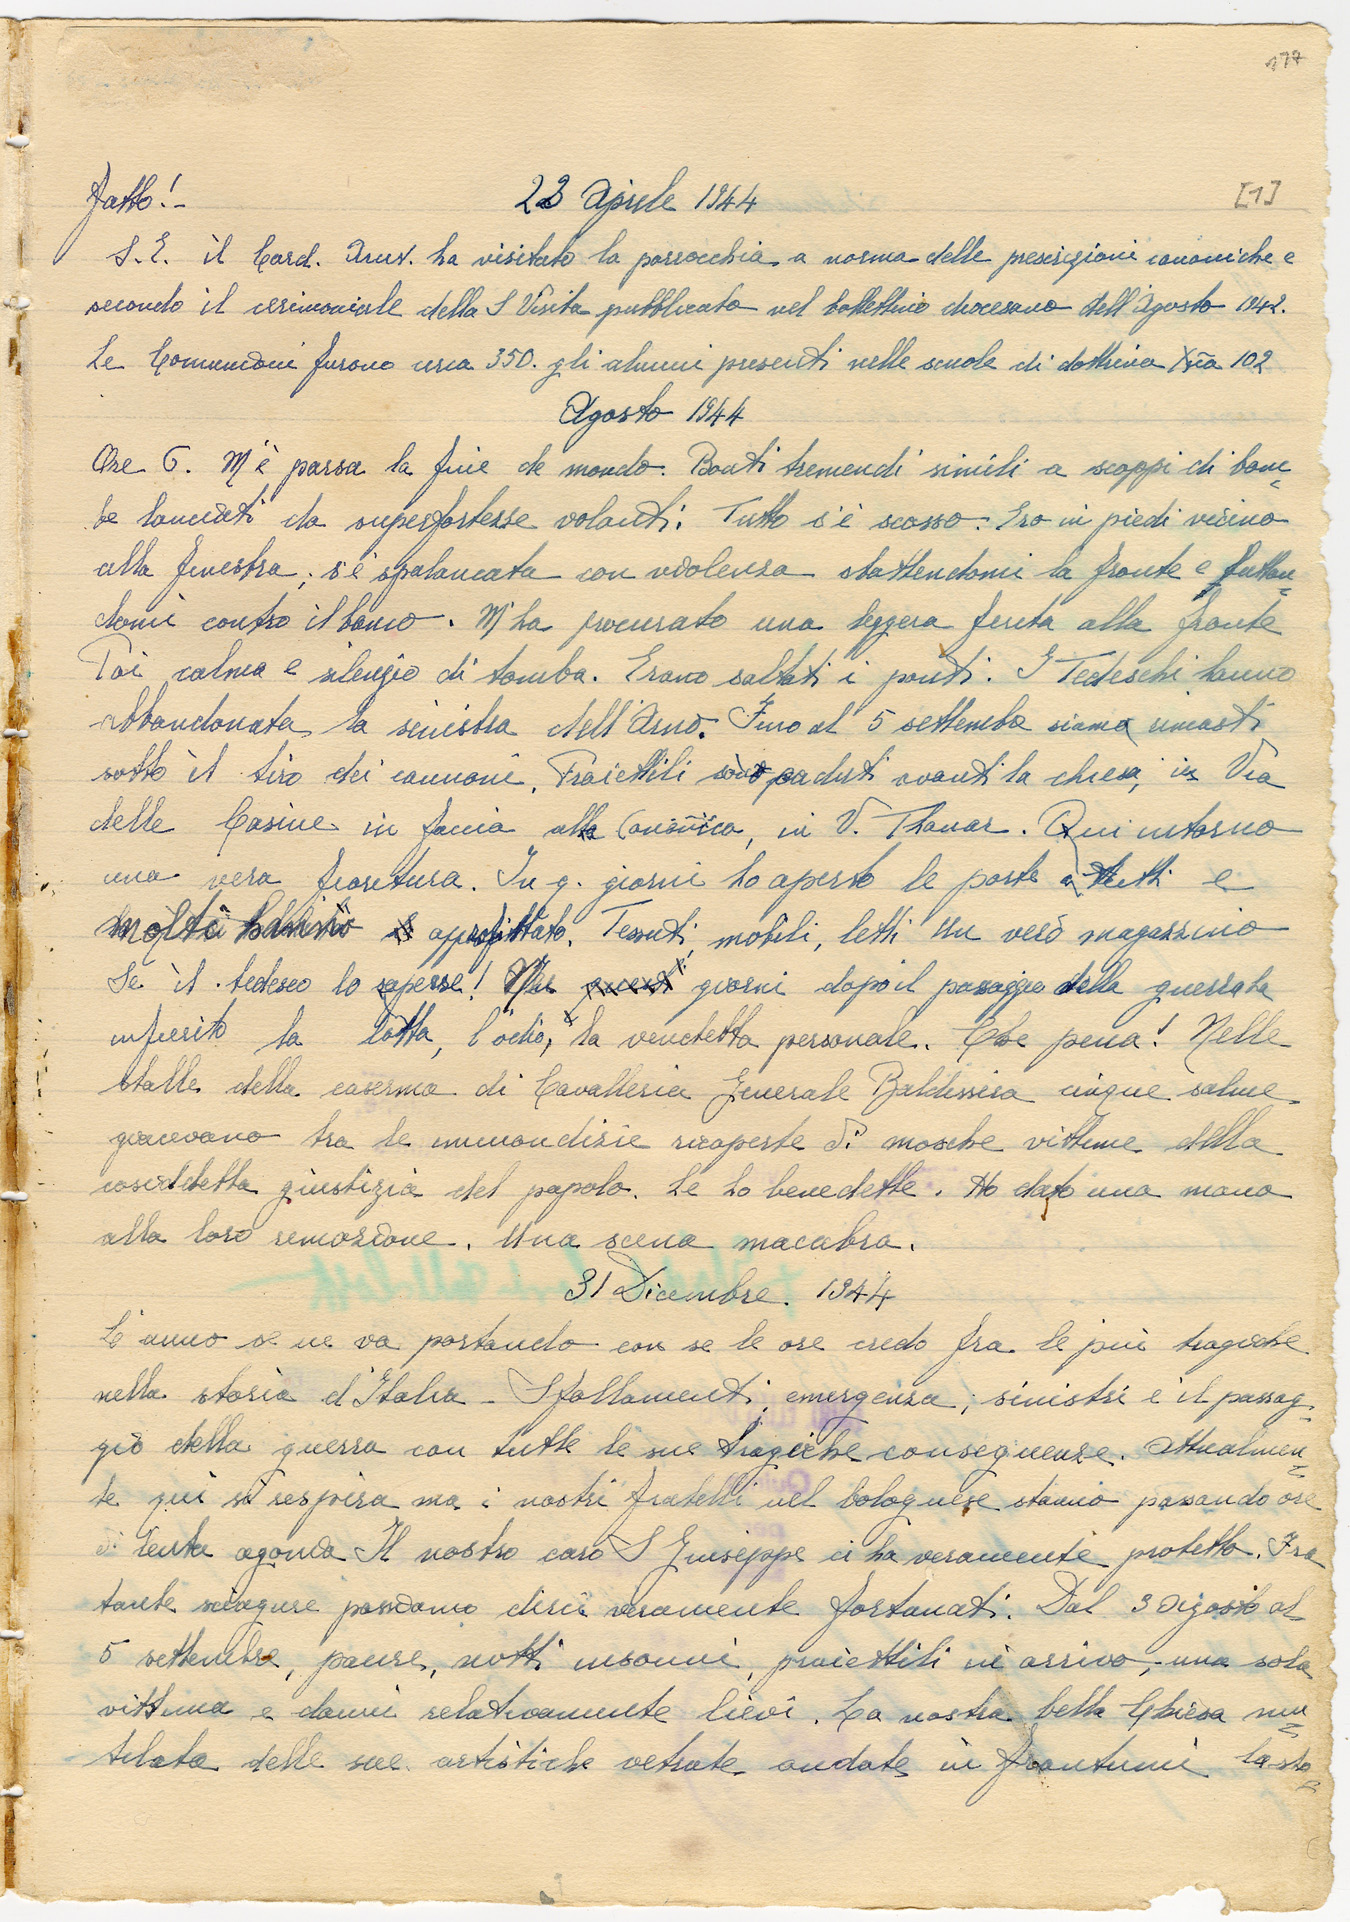 177
fatto! -
23 Aprile 1944
[1]
S. E. il Card. Arciv. ha visitato la parrocchia a norma delle prescrizioni canoniche e
secondo il cerimoniale della S Visita pubblicato nel bollettino diocesano dell'Agosto 1942.
Le Comunioni furono circa 350. gli alunni presenti nelle scuole di dottrina Xna 102
Agosto 1944
Ore 6. M'è parsa la fine de mondo. Boati tremendi simili a scoppi di bom=
be lanciati da superfortezze volanti. Tutto s'è scosso. Ero in piedi vicino
alla finestra; s'è spalancata con violenza sbattendomi la fronte e buttan=
domi contro il banco. M'ha procurato una leggera ferita alla fronte
Poi calma e silenzio di tomba. Erano saltati i ponti. I Tedeschi hanno
abbandonata la sinistra dell'Arno. Fino al 5 settembre siamo rimasti
sotto il tiro dei cannoni. Proiettili sono caduti avanti la chiesa, in Via
delle Casine in faccia alla Canonica, in V. Thouar. Qui intorno
una vera fioritura. In q. giorni ho aperto le porte a tutti e
molti hanno approfittato. Tessuti, mobili, letti Un vero magazzino
Se il tedesco lo sapesse! Nei giorni dopo il passaggio della guerra ha
infierito la lotta, l'odio, la vendetta personale. Che pena! Nelle
stalle della caserma di Cavalleria Generale Baldissera cinque salme
giacevano tra le immondizie ricoperte di mosche vittime della
cosiddetta giustizia del popolo. Le ho benedette. Ho dato una mano
alla loro remozione. Una scena macabra.
31 Dicembre. 1944
L'anno se ne va portando con se le ore credo fra le più tragiche
nella storia d'Italia - Sfollamenti, emergenza, sinistri e il passag=
gio della guerra con tutte le sue tragiche conseguenze. Attualmen=
te qui si respira ma i nostri fratelli nel bolognese stanno passando ore
di lenta agonia Il nostro caro S Giuseppe ci ha veramente protetto. Fra
tante sciagure possiamo dirci veramente fortunati. Dal 3 Agosto al
5 settembre, paure, notti insonni, proiettili in arrivo, una sola
vittima e danni relativamente lievi. La nostra bella Chiesa mu=
tilata delle sue artistiche vetrate andate in frantumi la sto=